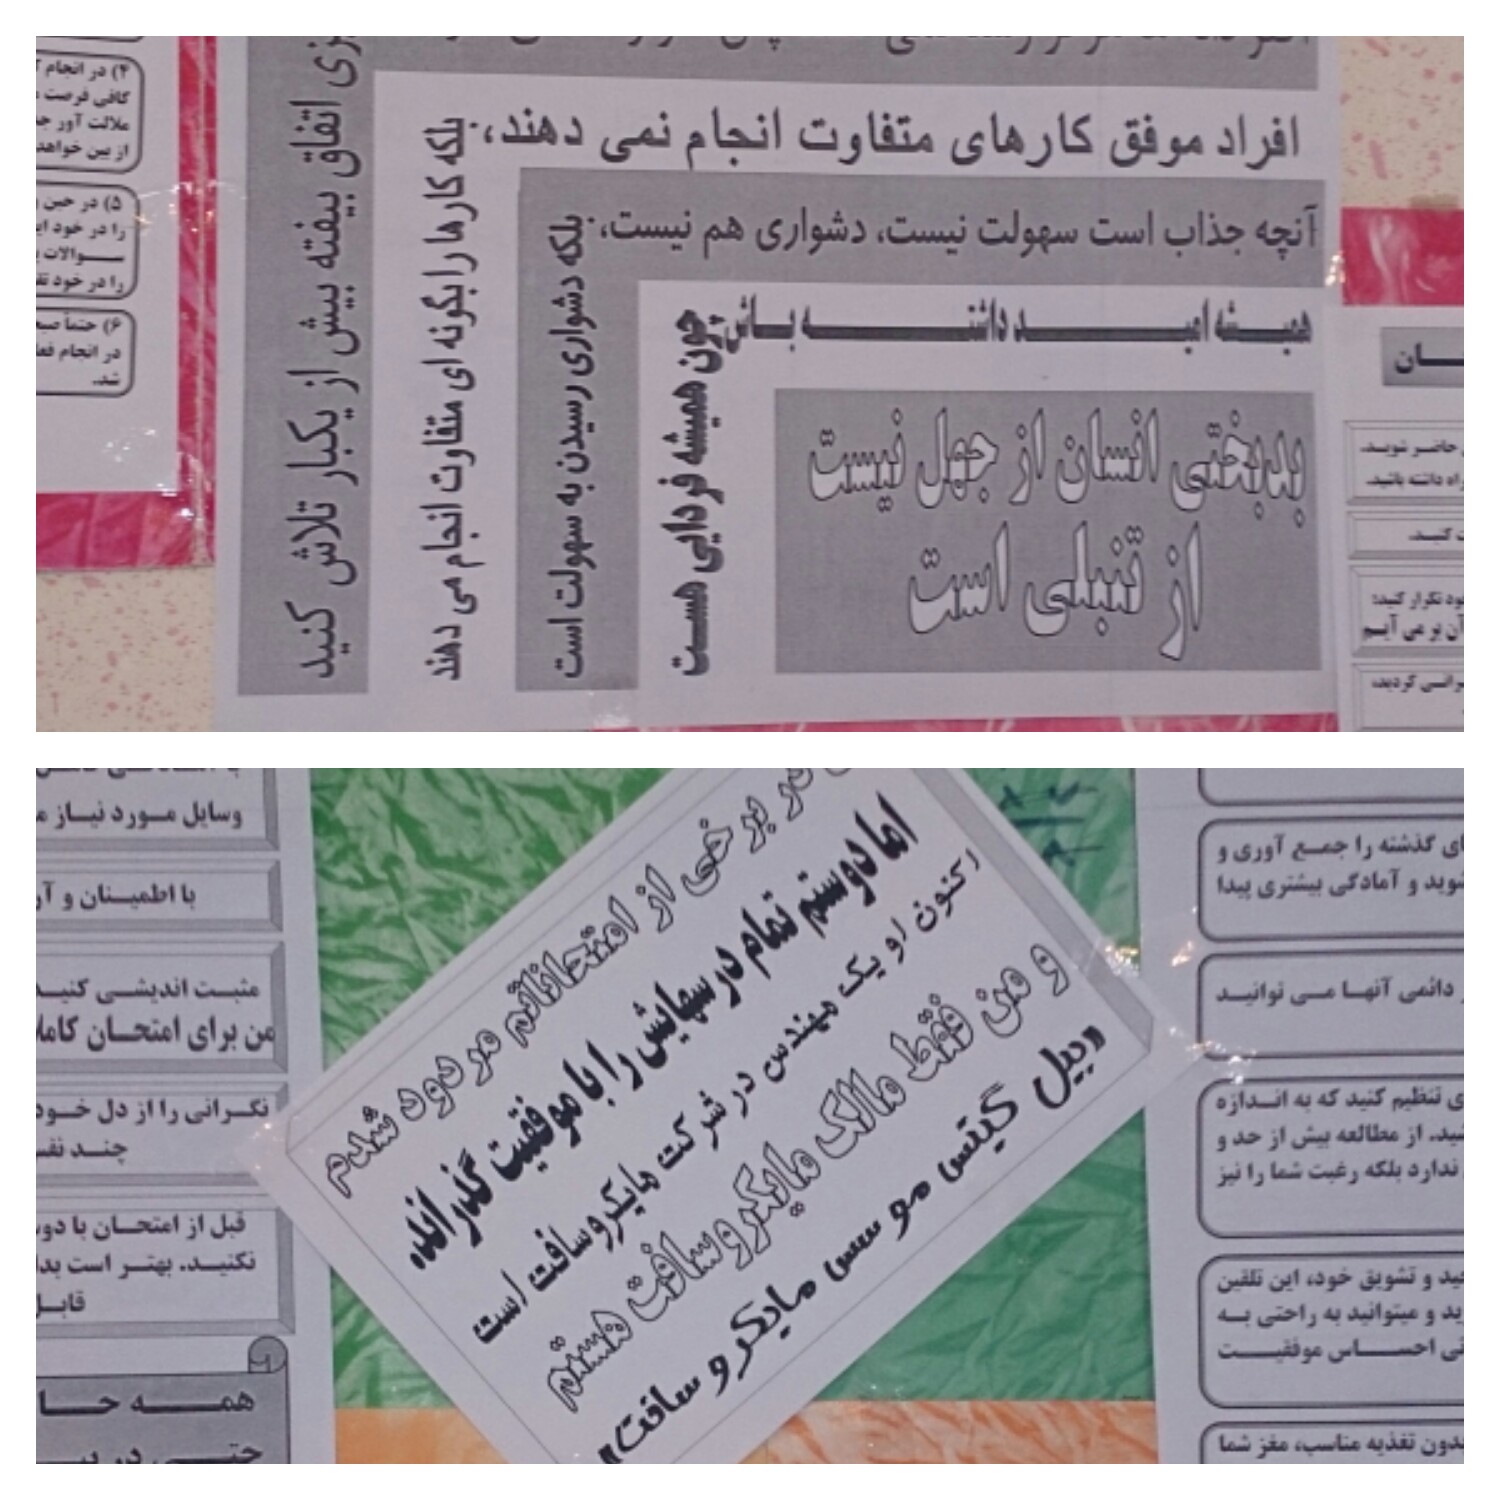 ۴) در انجام
کافی فرصت
ملالت آور
از بین خواهد
۵) در حین
را در خود
سوالات
را در خود
۶) حتماً
در انجام
شد.
اتفاق بیفته بیش از یکبار تلاش کنید
افراد موفق کارهای متفاوت انجام نمی دهند،
بلکه کارها را بگونه ای متفاوت انجام می دهند
آنچه جذاب است سهولت نیست، دشواری هم نیست،
بلکه دشواری رسیدن به سهولت است
همیشه امید داشته باش
چون همیشه فردایی هست
بدبختی انسان از جهل نیست
از تنبلی است
حاضر شوید.
داشته باشید.
کنید.
تکرار کنید:
آن بر می آیم
کردید،
وسایل مورد نیاز
با اطمینان و
مثبت اندیشی کنید
من برای امتحان کاملا
نگرانی را از دل خود
چند
قبل از امتحان با
نکنید. بهتر است
همه
حتی در
در برخی از امتحاناتم مردود شدم
اما دوستم تمام درسهایش را با موفقیت گذرانده
اکنون او یک مهندس در شرکت مایکروسافت است
و من فقط مالک مایکروسافت هستم
«بیل گیتس موسس مایکروسافت»
گذشته را جمع آوری و
شوید و آمادگی بیشتری پیدا
دائمی آنها می توانید
تنظیم کنید که به اندازه
از مطالعه بیش از حد و
ندارد بلکه رغبت شما را نیز
و تشویق خود، این تلقین
و میتوانید به راحتی به
احساس موفقیت
بدون تغذیه مناسب، مغز شما